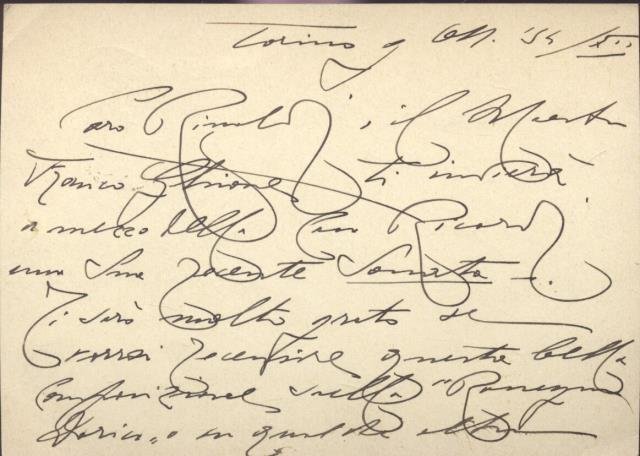 Torino 9 Ott. '34/XII
Caro Rinaldi, il Maestro
Franco Ghione ti invierà
a mezzo della Casa Ricordi
una Sua recente Sonata.
Ti sarò molto grato se
vorrai recensire questa bella
Composizione sulla "Rassegna
Dorica" o in qualche altro